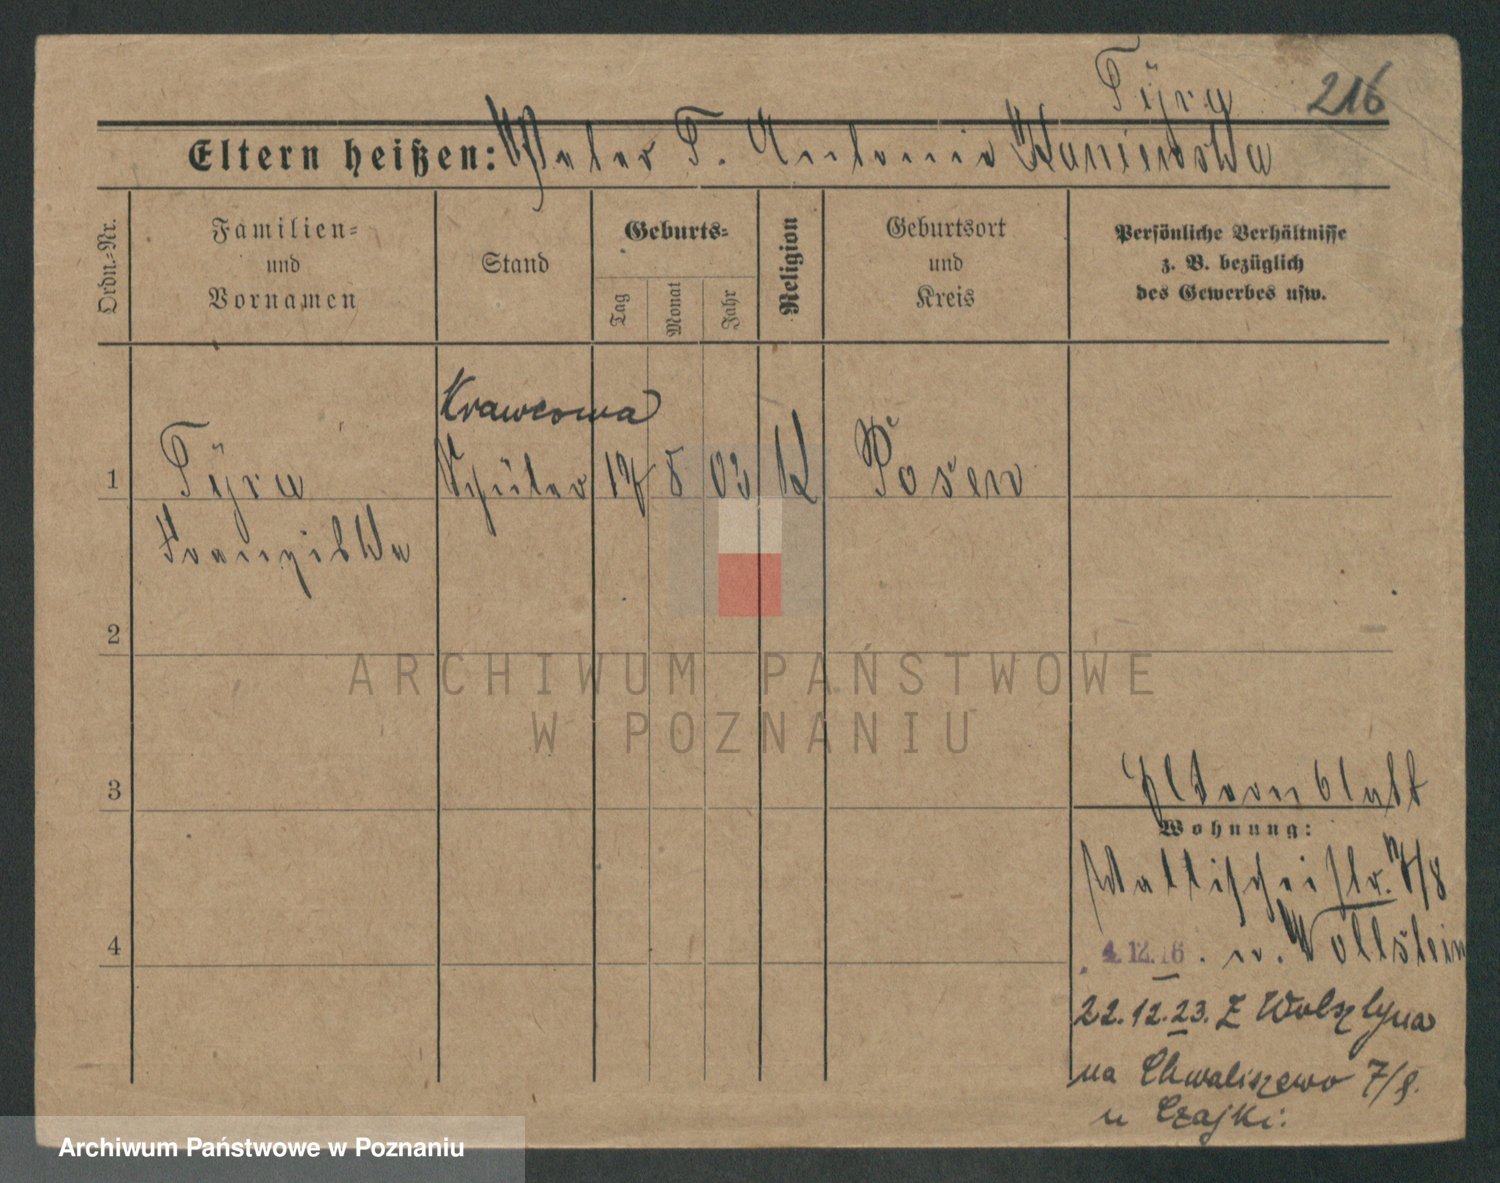 Tyra 216
Eltern heißen: Peter T. Antonie Kaniewska
Ordn.-Nr.
Familien-
und
Vornamen
Stand
Geburts-
Tag
Monat
Jahr
Religion
Geburtsort
und
Kreis
Persönliche Verhältnisse
z. B. bezüglich
des Gewerbes usw.
Krawcowa
1 Tyra Schüler 17 8 03 K Posen
Franziska
2
ARCHIWUM PAŃSTWOWE
W POZNANIU
3
Elternblatt
Wohnung:
Wallischeistr. 7/8
4
4.12.16. n. Wollstein
22.12.23. Z Wolsztyna
na Chwaliszewo 7/8.
u Czajki.
Archiwum Państwowe w Poznaniu